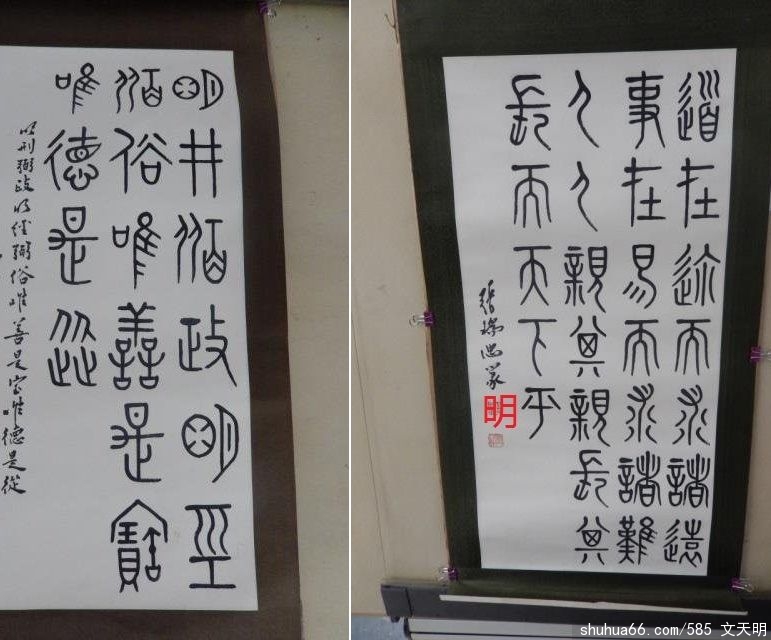 明井弼政明巠
弼俗唯善是寶
唯德是從
明刑弼政明經弼俗唯善是宝唯德是從
道在迩而求諸遠
事在易而求諸難
人人親其親長其
長而天下平
張瑞篆
明
shuhua66.com/585 文天明